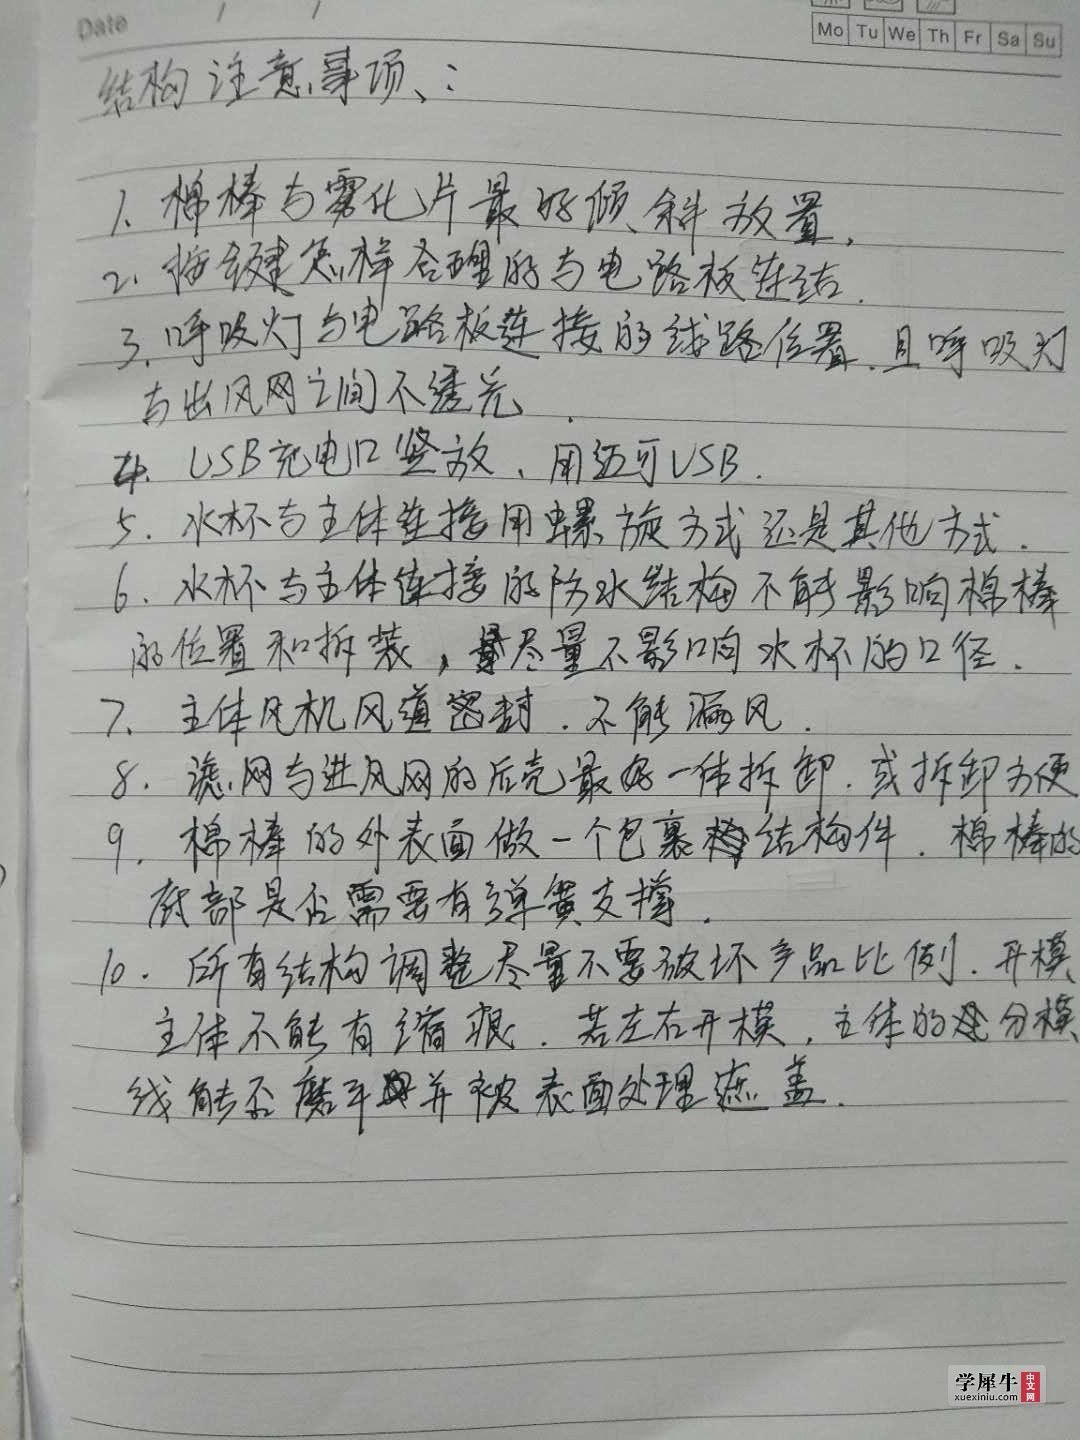 Date / /
Mo Tu We Th Fr Sa Su
结构注意事项、:
1、棉棒与雾化片最好倾斜放置,
2、按键怎样合理的与电路板连结.
3、呼吸灯与电路板连接的线路位置.且呼吸灯
与出风网之间不透光.
4. USB充电口竖放、用迈可USB.
5. 水杯与主体连接用螺旋方式还是其他方式.
6. 水杯与主体连接的防水结构不能影响棉棒
的位置和拆装,尽量不影响水杯的口径.
7. 主体风机风道密封.不能漏风.
8. 滤网与进风网的后壳最好一体拆卸.或拆卸方便
9. 棉棒的外表面做一个包裹结构件.棉棒的
底部是否需要有弹簧支撑.
10. 所有结构调整尽量不要破坏产品比例.开模
主体不能有缩痕.若左右开模,主体的分模
线能否磨平并被表面处理遮盖.
学犀牛
中文网
xuexiniu.com